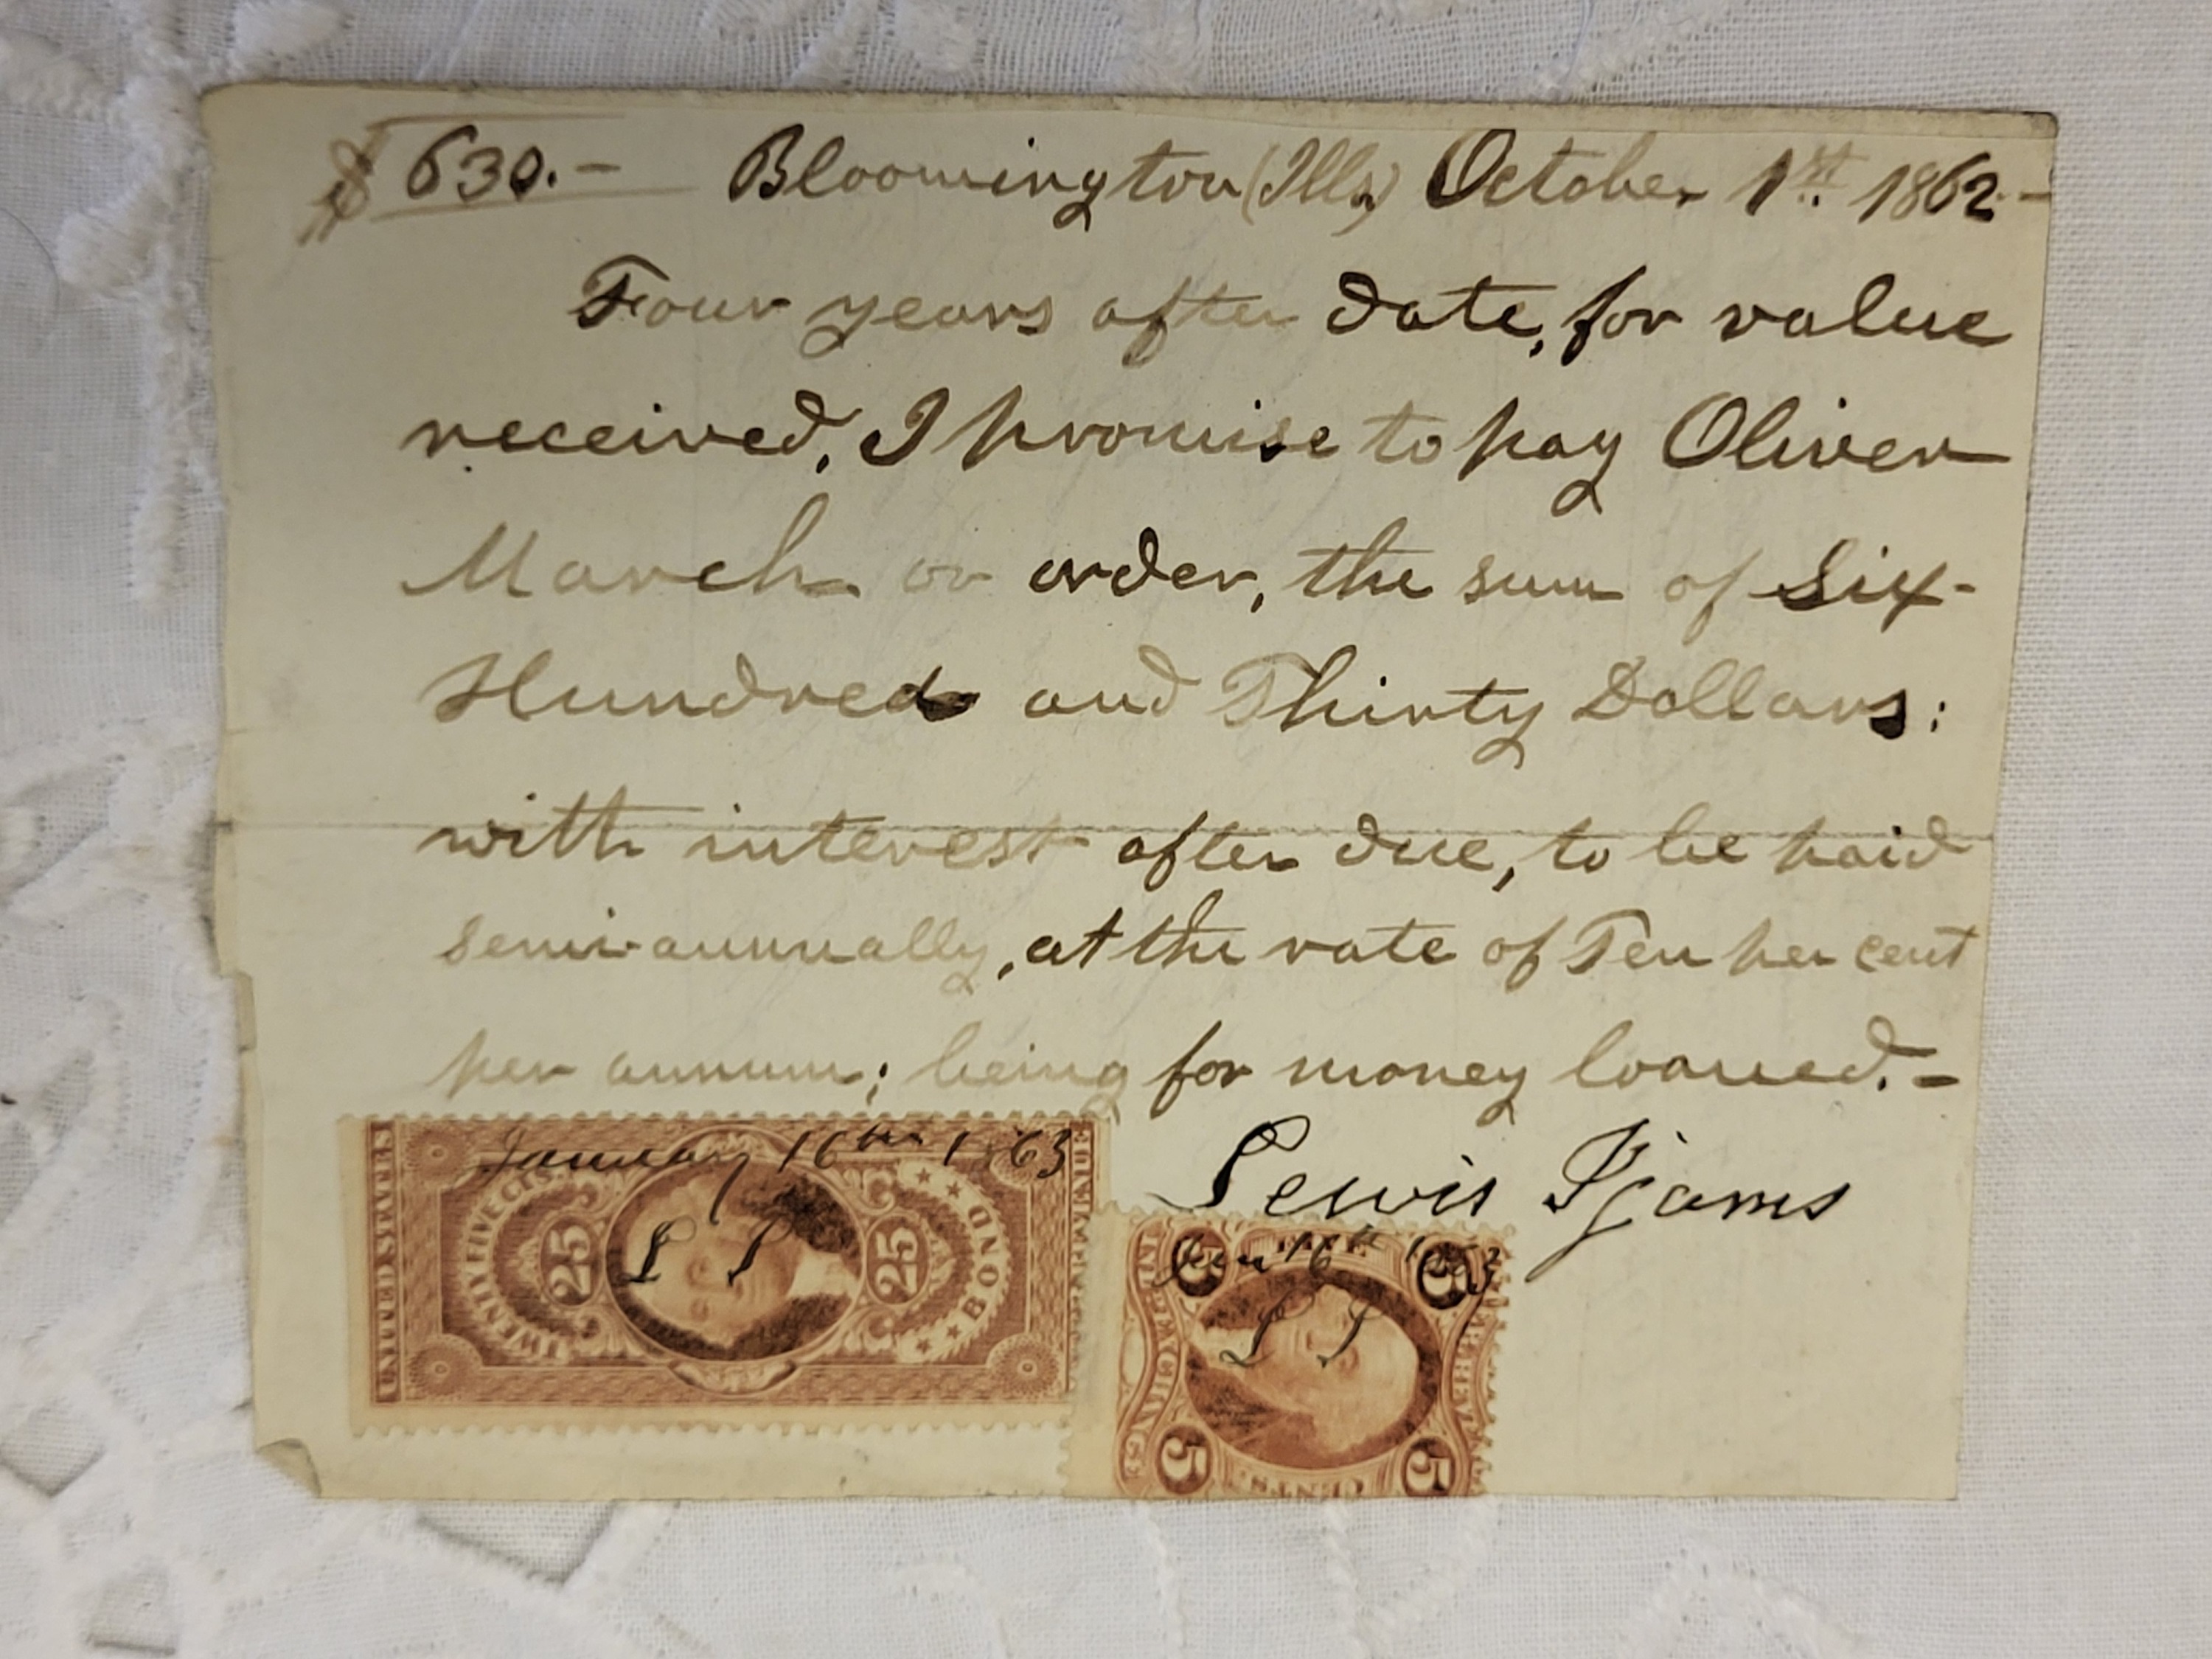 $ 630.- Bloomington (Ills.) October 1st. 1862-
Four years after date, for value
received, I promise to pay Oliver
March or order, the sum of Six-
Hundred and Thirty Dollars:
with interest after due, to be paid
semi-annually, at the rate of Ten per cent
per annum; being for money loaned.-
Lewis Ijams
January 16th 1863
UNITED STATES
TWENTY FIVE CTS.
25
25
BOND
L I
Jan 16th 1863
5
5
L I
INL. EXCHANGE
5
5
CENTS